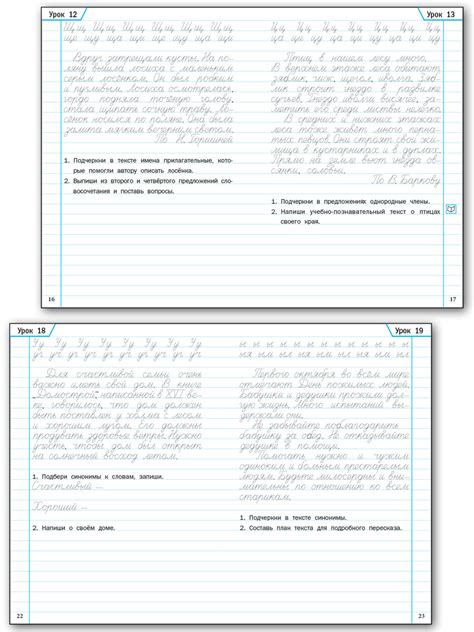 Урок 12
Щщ Щщ Щщ Щщ Щщ Щщ
ще щу ща щи ще щу ща щи
Вдруг затрещали кусты. На по-
ляну вышла лосиха с маленьким
серым лосёнком. Он был робким
и пугливым. Лосиха осмотрелась,
гордо подняла точёную голову,
стала щипать сочную траву. Ло-
сёнок носился по поляне. Она была
залита мягким вечерним светом.
1. Подчеркни в тексте имена прилагательные, кото-
рые помогли автору описать лосёнка.
2. Выпиши из второго и четвёртого предложений сло-
восочетания и поставь вопросы.
16
Урок 13
Цц Цц Цц Цц Цц Цц Цц
Птиц в нашем лесу много.
В верхнем этаже леса обитают
зяблик, чиж, щегол, иволга. Зяб-
лик строит гнездо в развилке
сучьев. Гнездо иволги висячее, за-
метить его среди листвы нелегко.
В средних и нижних этажах
леса тоже живёт много перна-
тых певцов. Они строят свои жи-
лища в кустарниках и в дуплах.
Прямо на земле вьют гнёзда ов-
сянки, соловьи.
По В. Баркову
1. Подчеркни в предложениях однородные члены.
2. Напиши учебно-познавательный текст о птицах
своего края.
17
Урок 18
Уу Уу Уу Уу Уу Уу Уу Уу
Для счастливой семьи очень
важно иметь свой дом. В книге
„Домострой", написанной в XVI ве-
ке, говорилось, что дом должен
быть поставлен у холма с лесом
и хорошим лугом. Его должны
продувать здоровые ветры. Нужно
учесть, чтобы дом был открыт
на солнечный восход летом.
1. Подбери синонимы к словам, запиши.
Счастливый —
Хороший —
2. Напиши о своём доме.
22
Урок 19
ы ы ы ы ы ы ы ы ы ы ы
Первого октября во всём мире
отмечают День пожилых людей.
Бабушки и дедушки прожили дол-
гую жизнь. Много испытаний вы-
держали они.
Не забывайте поблагодарить
бабушку за обед. Не отказывайте
дедушке в помощи.
Помогать нужно и чужим
одиноким и больным престарелым
людям. Будьте милосердны и вни-
мательны по отношению ко всем
старикам.
1. Подчеркни в тексте синонимы.
2. Составь план текста для подробного пересказа.
23